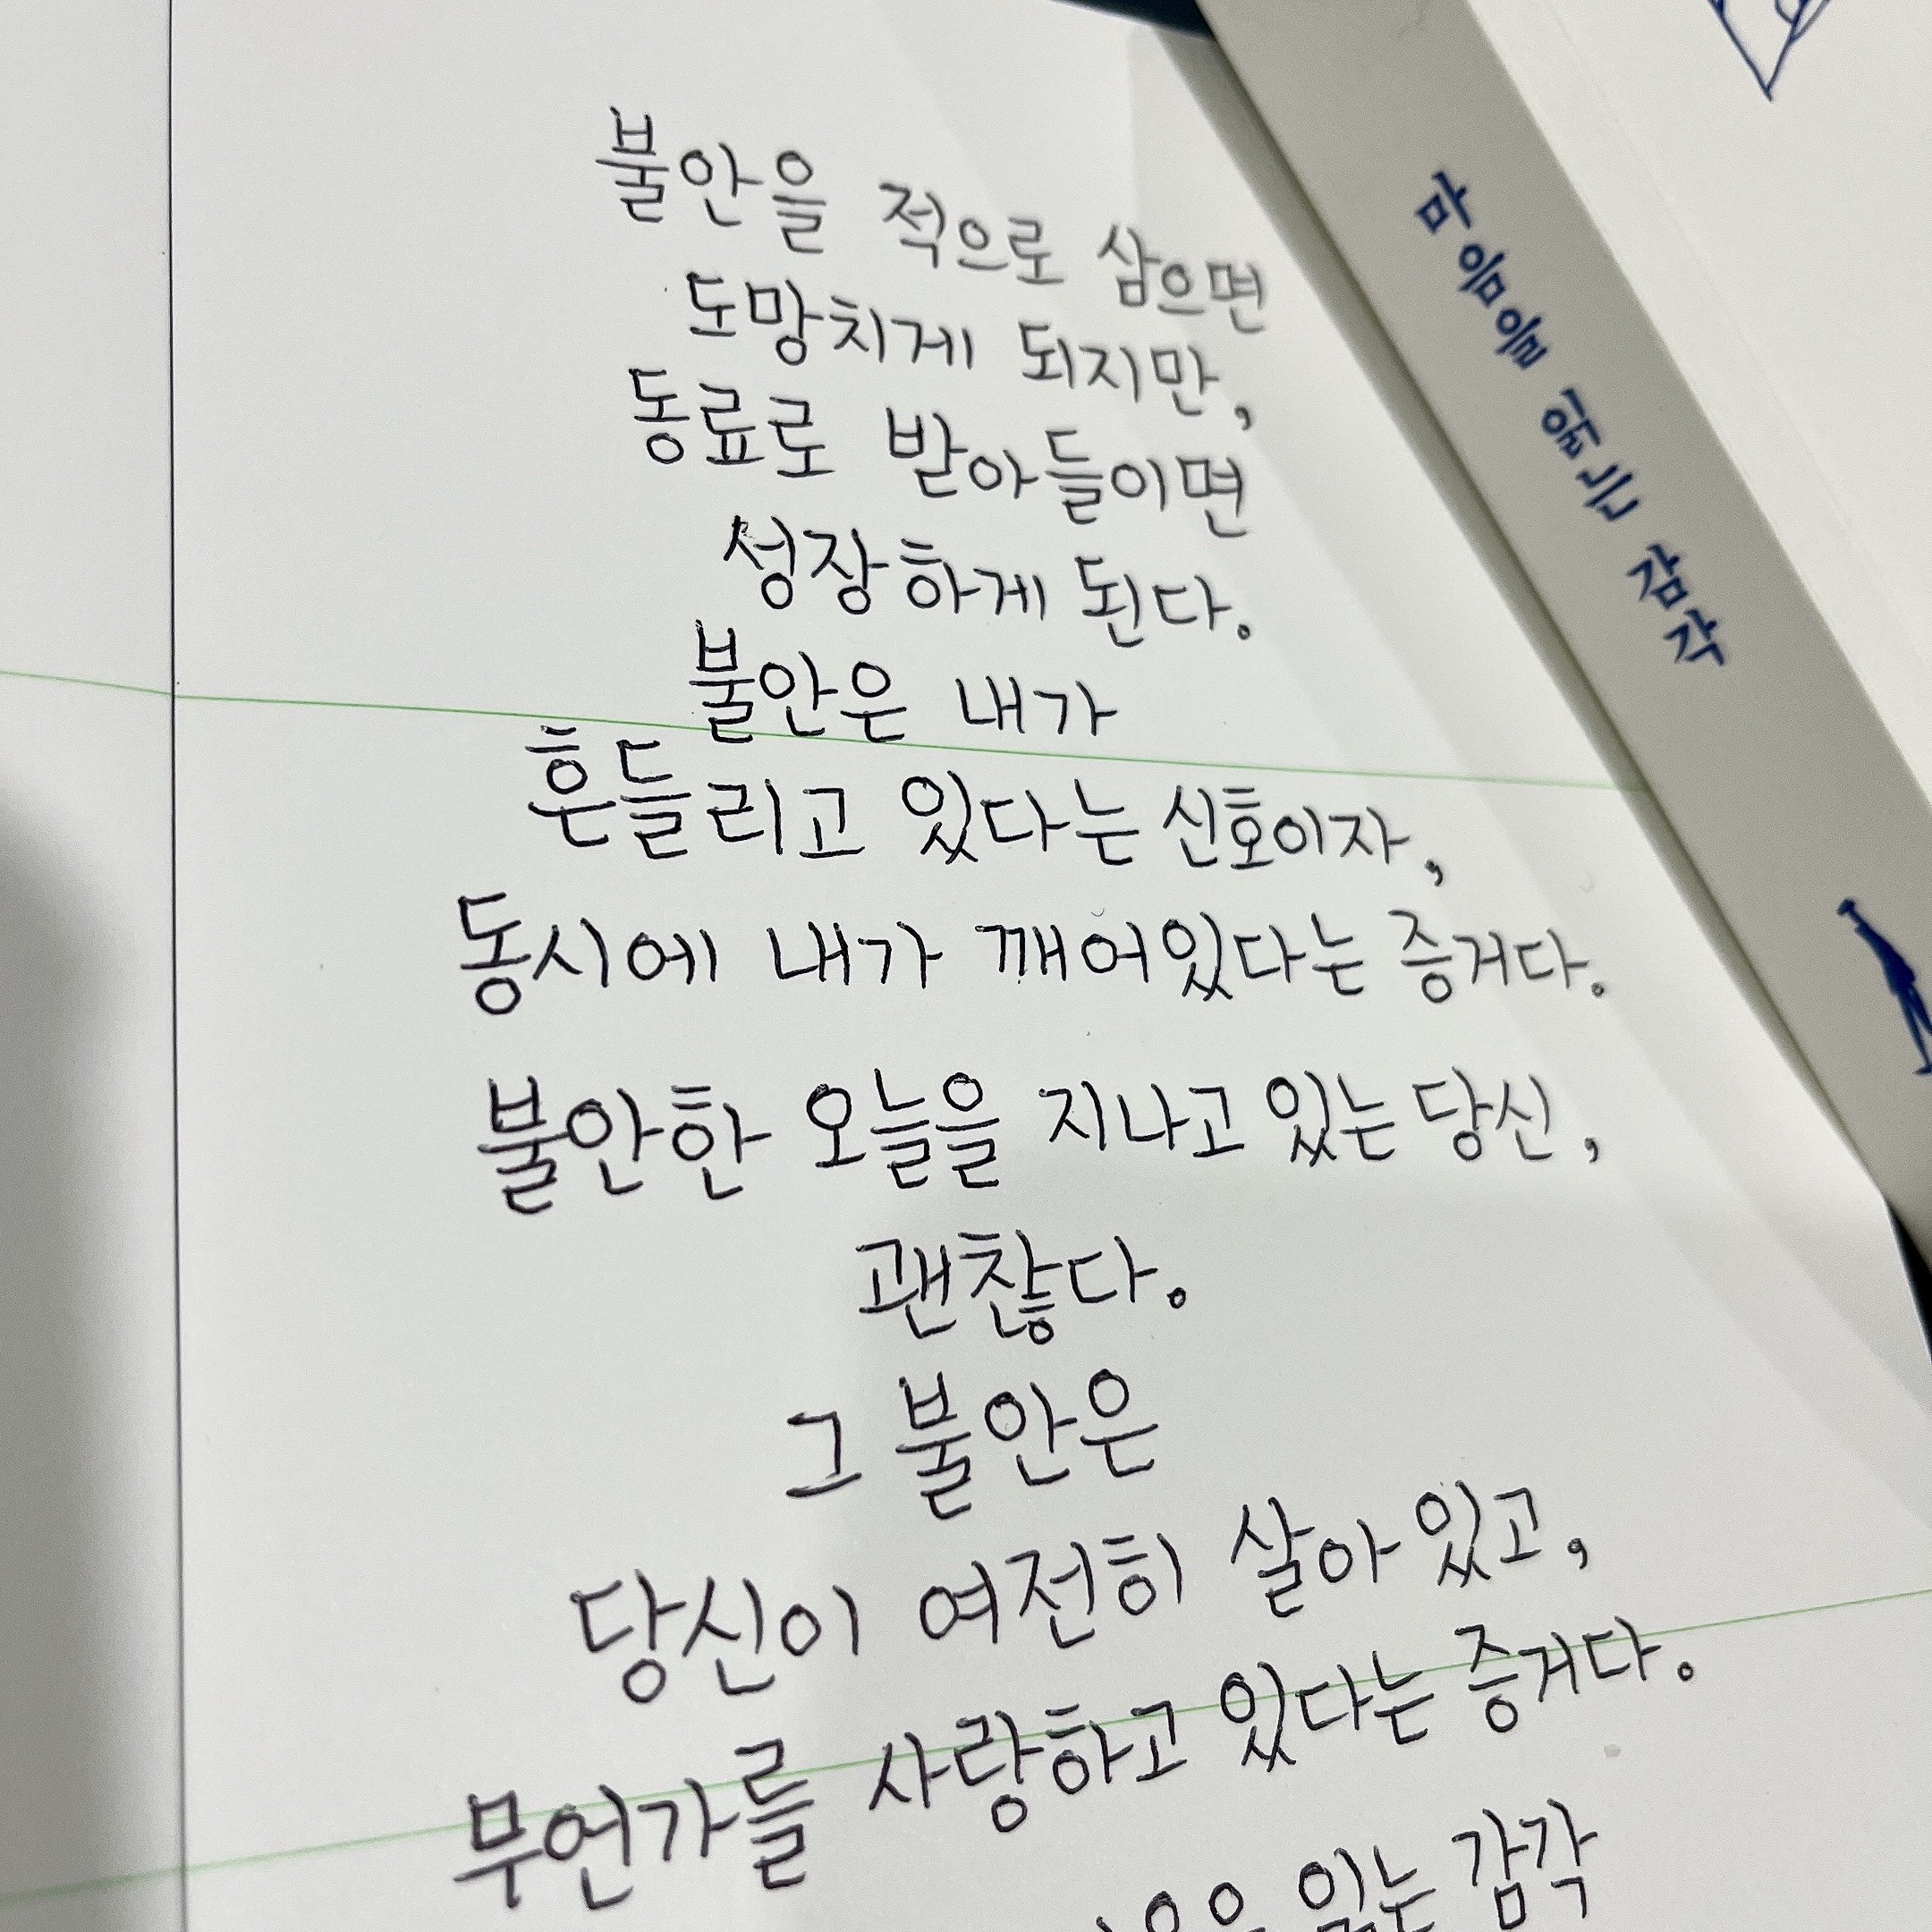 불안을 적으로 삼으면
도망치게 되지만,
동료로 받아들이면
성장하게 된다.
불안은 내가
흔들리고 있다는 신호이자,
동시에 내가 깨어있다는 증거다.
불안한 오늘을 지나고 있는 당신,
괜찮다.
그 불안은
당신이 여전히 살아 있고,
무언가를 사랑하고 있다는 증거다.
읽는 감각
마음을 읽는 감각